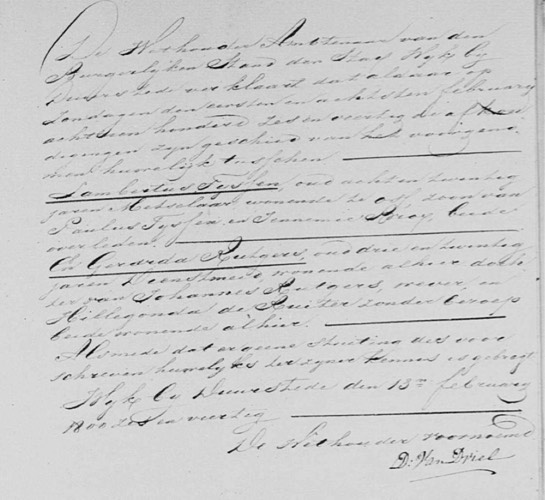 De Wethouder Ambtenaar van den
Burgerlijken Stand der Stad Wyk by
Duurstede verklaart dat aldaar op
Zondagen den eersten en achtsten february
achttien honderd zes en veertig de
zyn geschied van het voorgeno-
men huwelijk tusschen
Lambertus Tyssen, oud acht en twintig
jaren Metselaar wonende te zoon van
Paulus Tyssen en Broy, beide
overleden
En Gerarda Rutgers, oud drie en twintig
jaren Dienstmeid, wonende alhier doch-
ter van Johannes Rutgers, wever, en
Hillegonda de Ruiter zonder beroep
beide wonende alhier.
Alsmede dat er geene stuiting des voor-
schreven huwelijks ter zyner kennis is gebragt
Wyk by Duurstede den 13n february
1800 zes en veertig
De Wethouder voornoemd
D: Van Driel